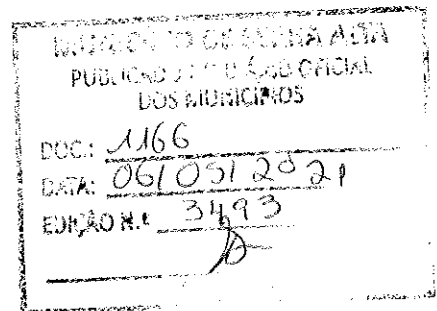 MUNICÍPIO DE SERRA ALTA
PUBLICADO DIÁRIO OFICIAL
DOS MUNICÍPIOS
DOC.: 1166
DATA: 06/05/2021
EDIÇÃO N.º 3493